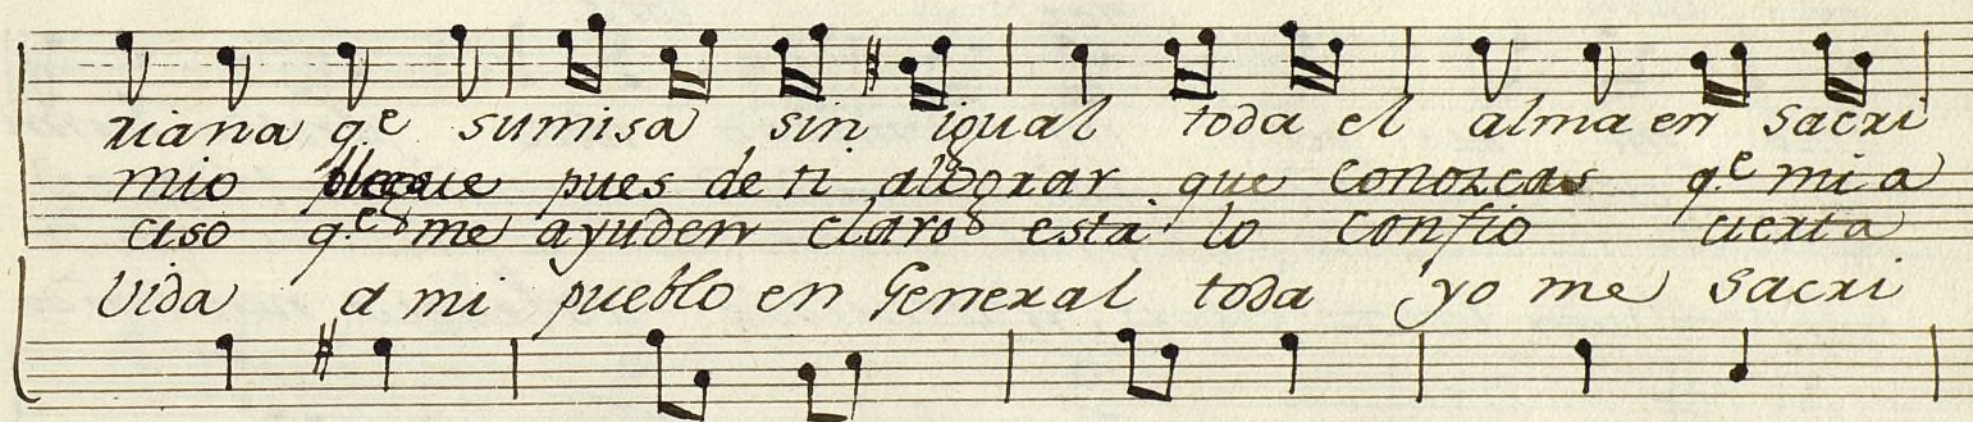 riana q.e sumisa sin igual toda el alma en sacri
mio pues de ti alograr que conozcas q.e mi a
ciso q.e me ayuden claro está lo confio cierta
vida a mi pueblo en General toda yo me sacri